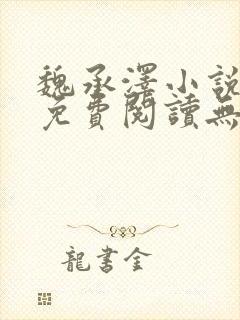 魏承澤小說
免費閱讀無
龍書金